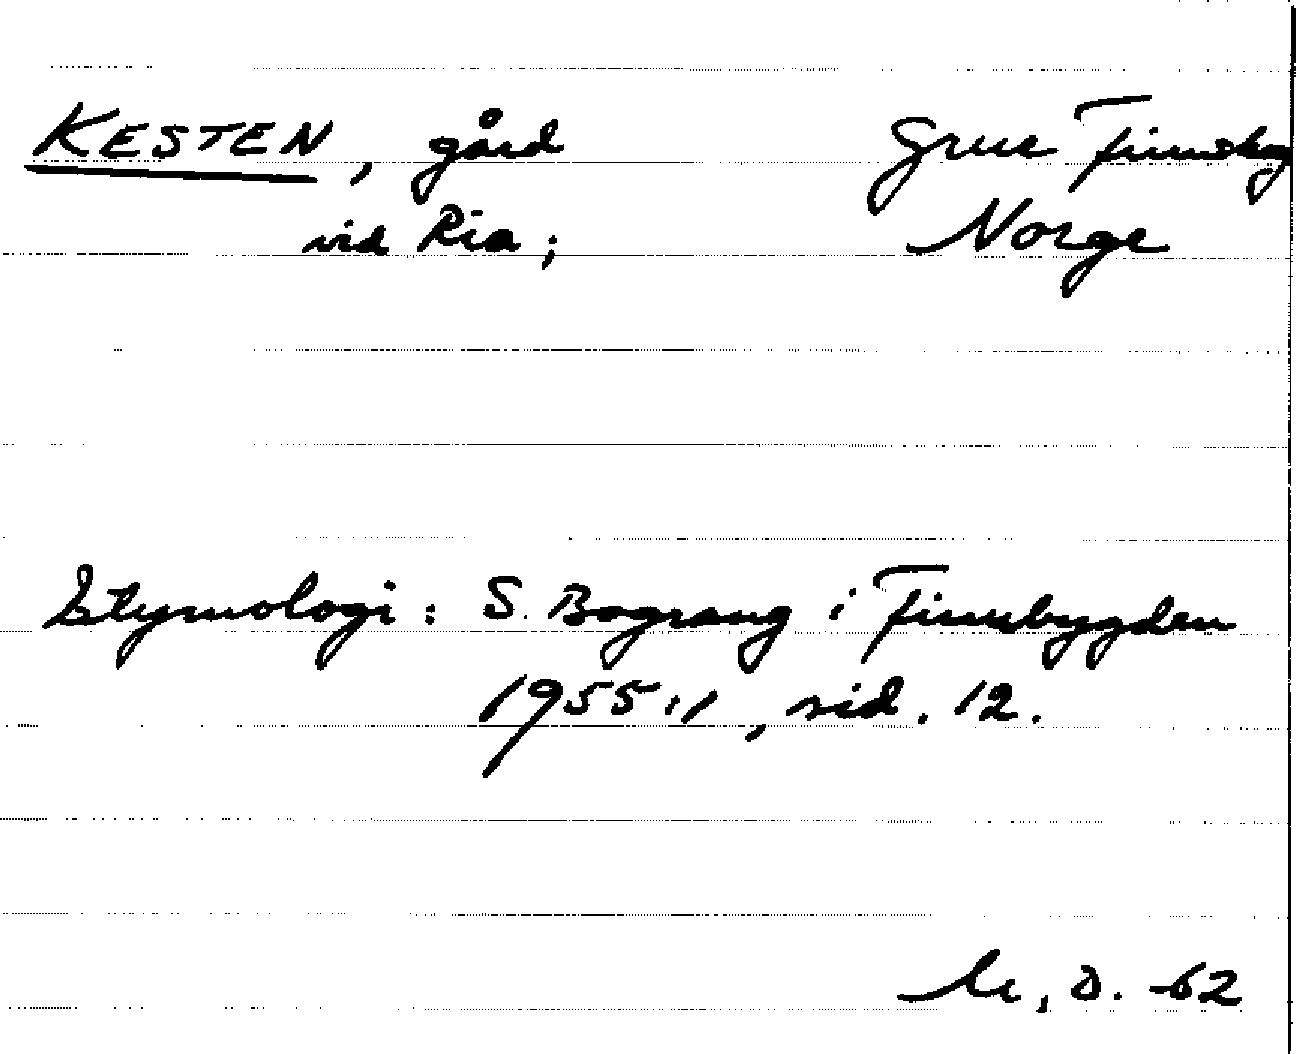 KESTEN, gård Grue Finnskog
vid Ria; Norge
Etymologi: S. Bograng i Finnbygden
1955:1, sid. 12.
D. -62